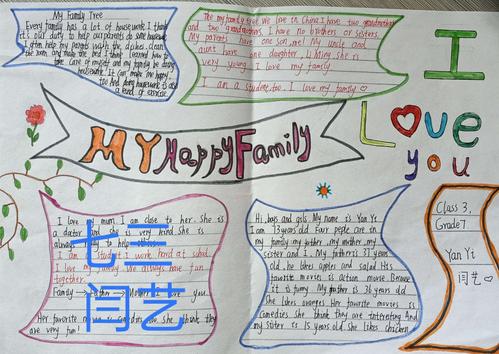 My Family Tree
Every family has a lot of housework. I think
it's our duty to help our parents do some housework.
I often help my parents wash the dishes, clean
the room, and make the bed. I think I learned how to
take care of myself and my family by doing
housework. It can make me happy!
too. And doing housework is also
a kind of exercise.
The my family tree. We love in China. I have two grandmothers
and two grandfathers. I have no brothers or sisters.
My parents have one son, me! My uncle and
aunt have one daughter, Li Ming. She is
very young. I love my family
I am a student, too. I love my family
I
Love
you
MY Happy Family
I love my mum. I am close to her. She is
a doctor and she is very kind. She is
always to help
I am a student. I work hard at school.
I love my family. We always have fun
together.
Family → Father → Mother you.
Her favorite is comedies She think they
are very fun!
七三
闫艺
Hi, boys and gils. My name is Yan Yi
I am 13 years old. Four peple are in
my family, my father, my mother, my
sister and I. My father is 37 years
old, he likes apples and salad. His
favorite movies is action movie. Because
it is funny. My mother is 36 years old
She likes oranges. Her favorite movies is
comedies She think they are interesting. And
my sister is 15 years old. She likes chicken
Class 3,
Grade7
Yan Yi
闫艺